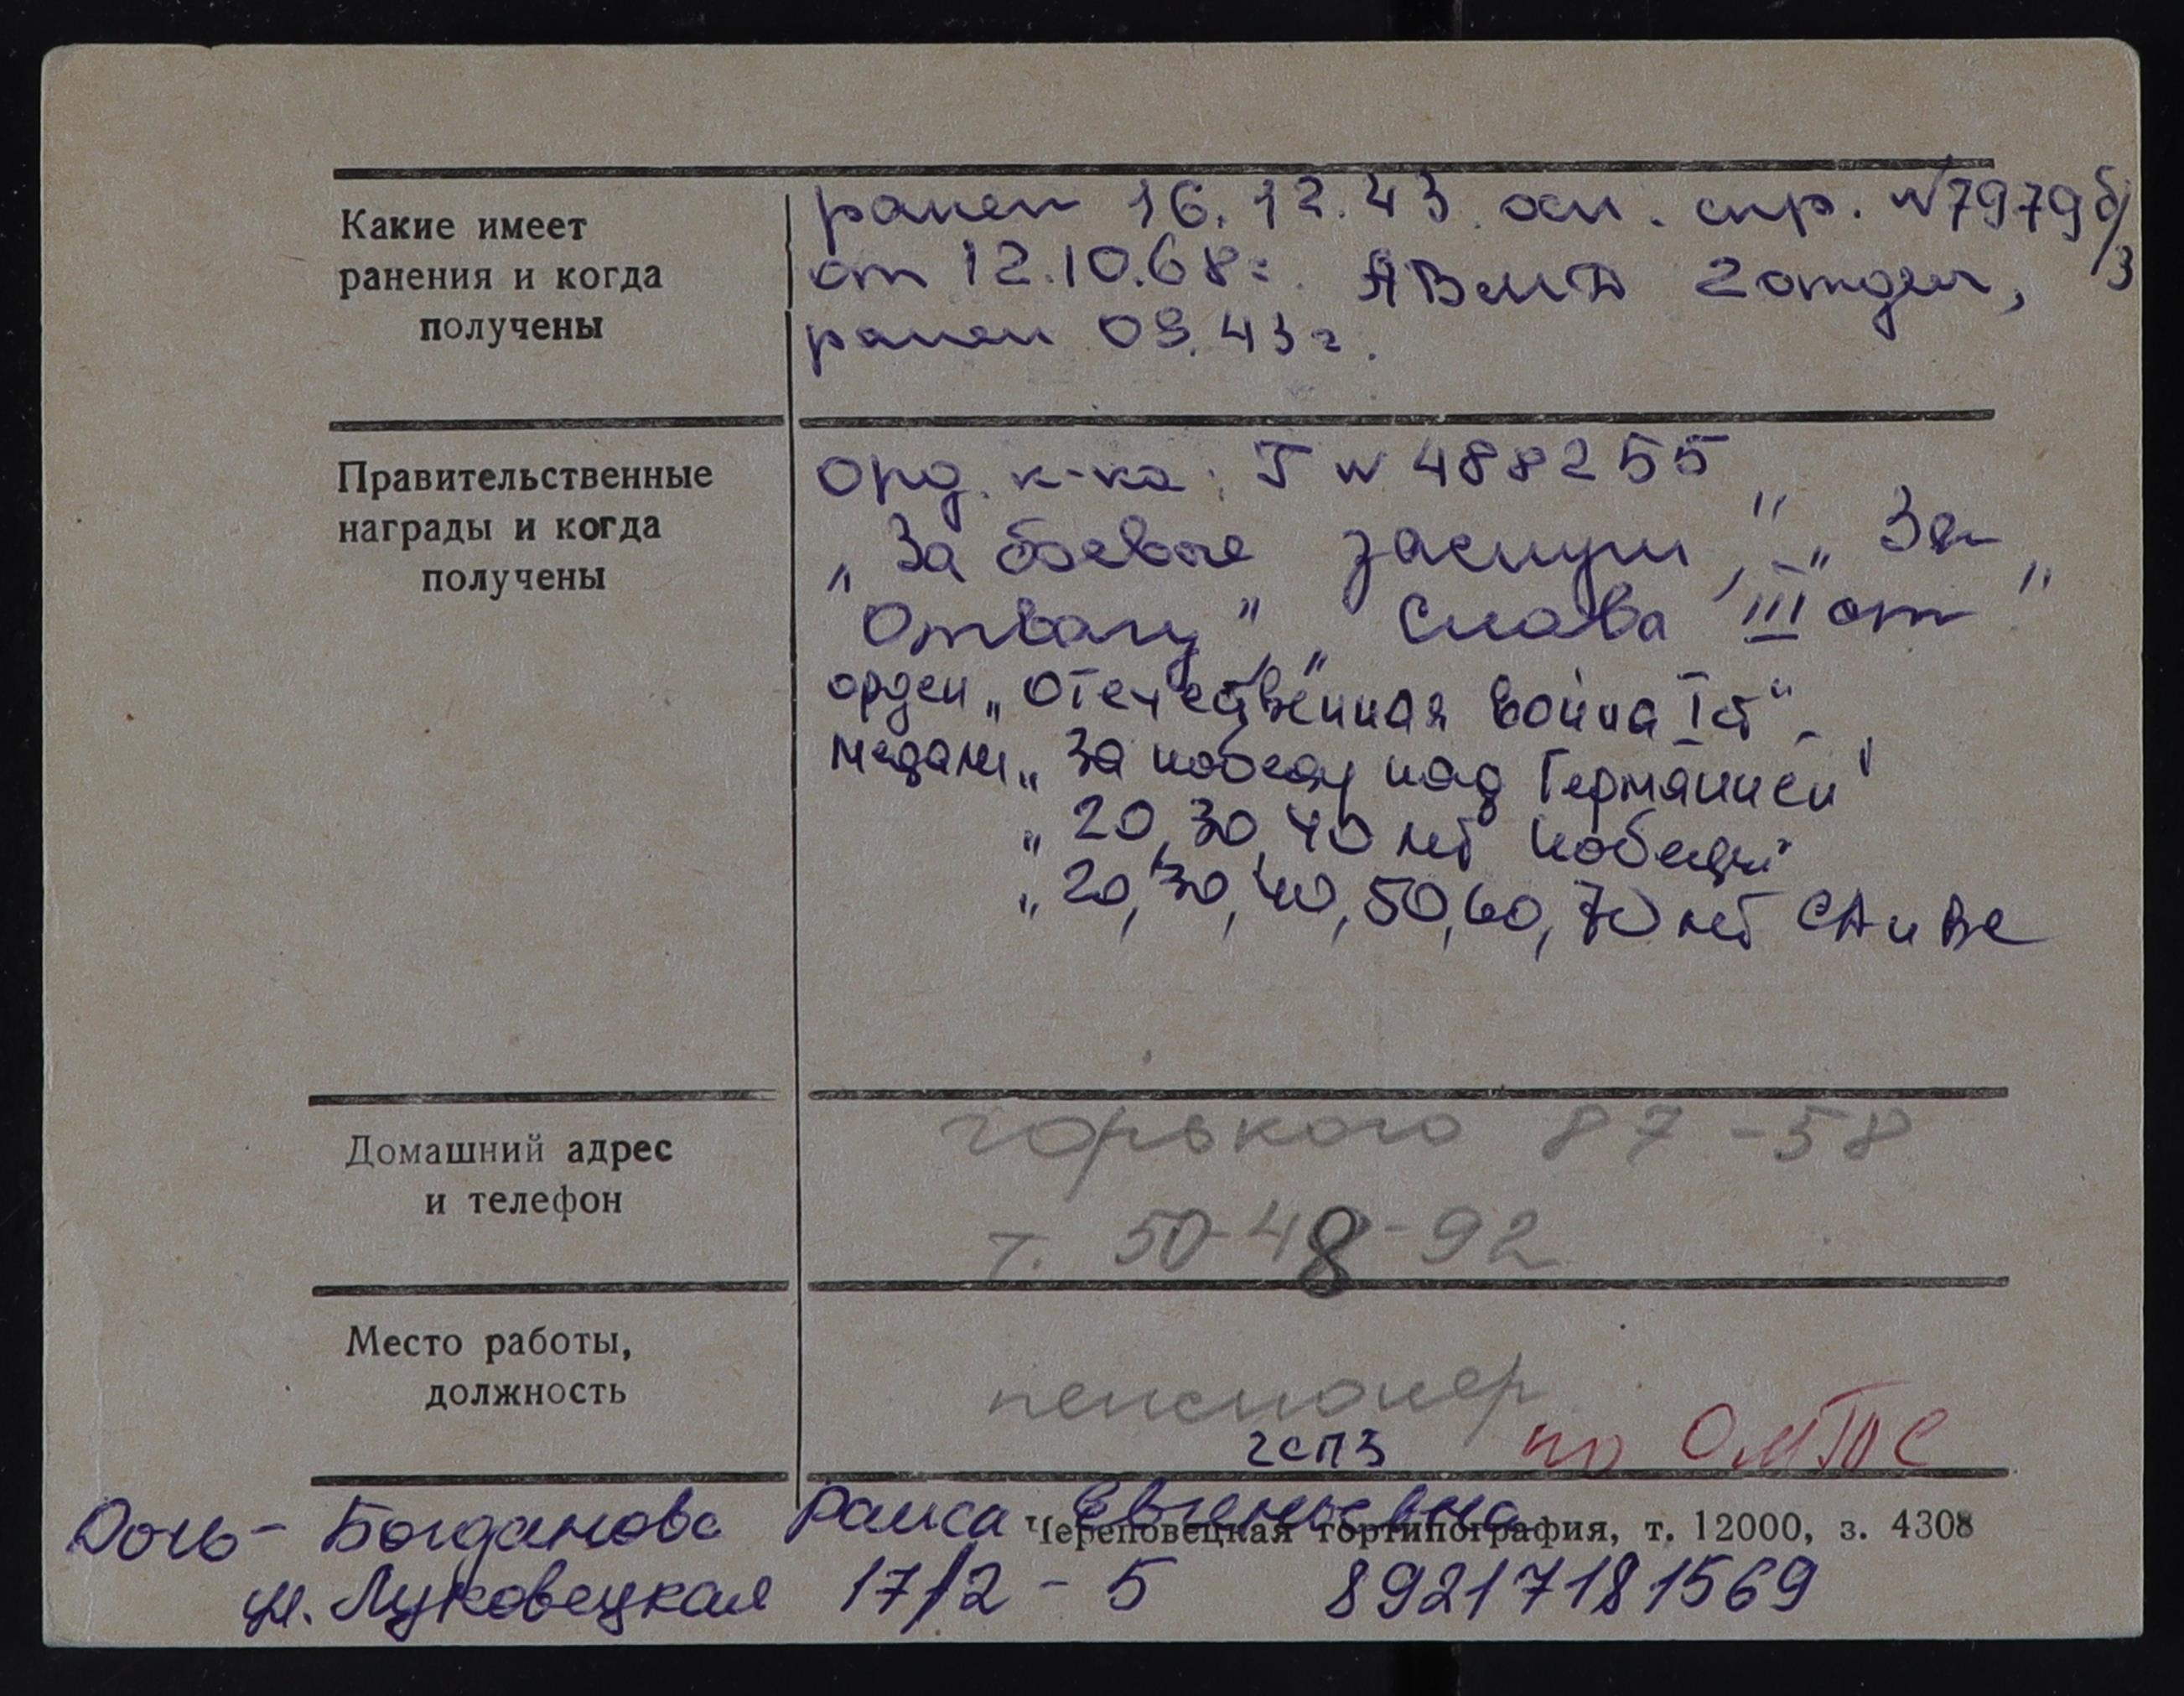 Какие имеет
ранения и когда
получены
ранен 16.12.43. осн. спр. №7979б/3
от 12.10.68г. АВМА 2 отдел,
ранен 09.43 г.
Правительственные
награды и когда
получены
Орд. к-ка: Г № 488255
„За боевые заслуги", „За
Отвагу", „Слава III ст"
орден „Отечественная война I ст"
медали „За победу над Германией"
„20, 30, 40 лет Победы"
„20, 30, 40, 50, 60, 70 лет СА и ВС
Домашний адрес
и телефон
Горького 87-58
т. 50-48-92
Место работы,
должность
пенсионер
ГСПЗ по ОМТС
Дочь - Богданова Раиса Евгеньевна
Череповецкая гортипография, т. 12000, з. 4308
ул. Луковецкая 17/2 - 5 89217181569